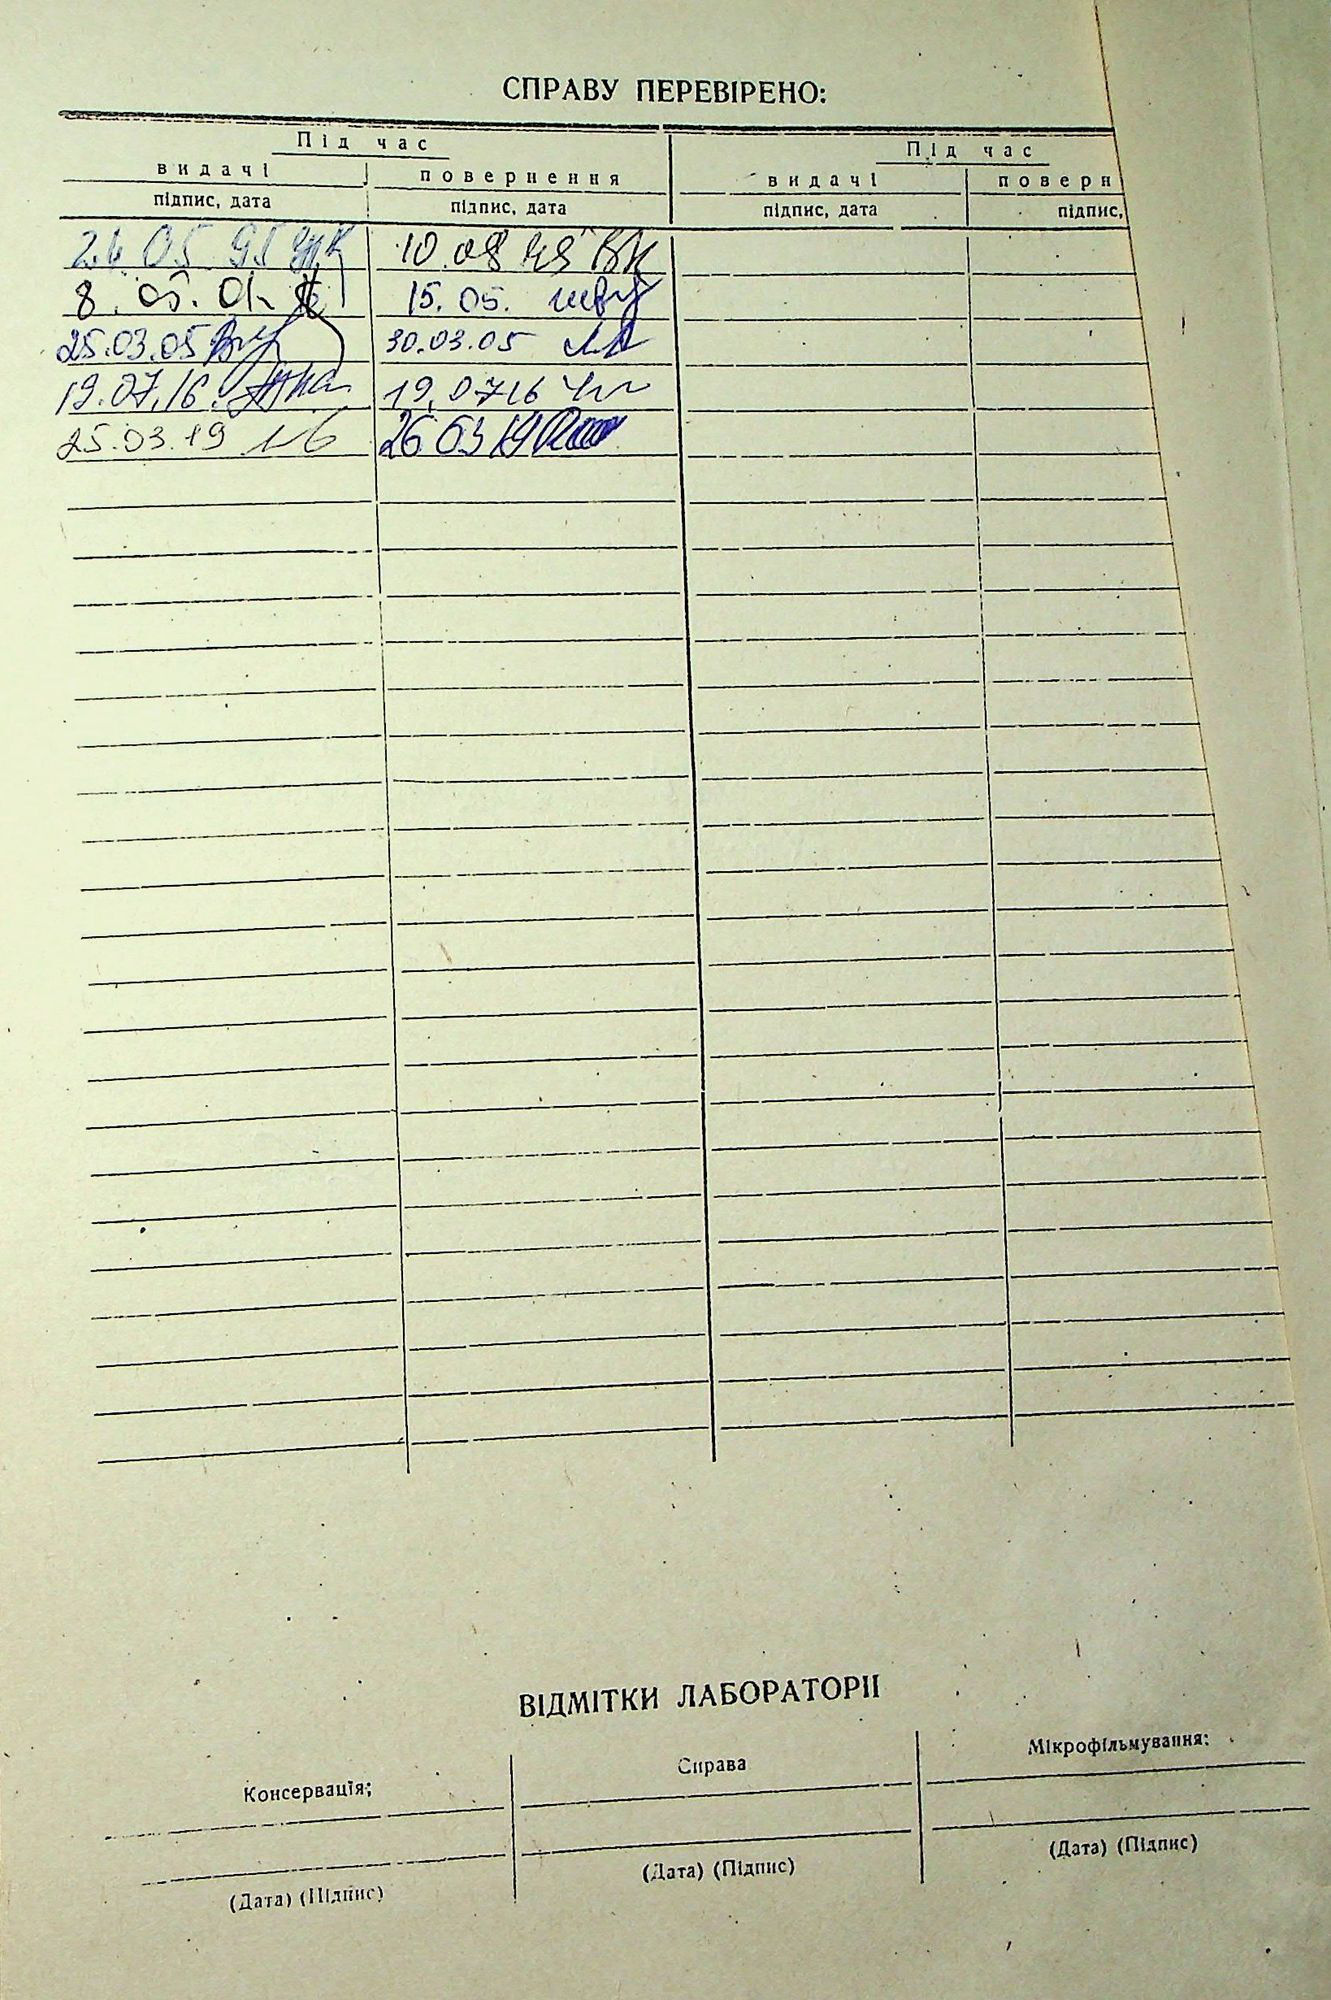 СПРАВУ ПЕРЕВІРЕНО:
Під час Під час
видачі повернення видачі поверн
підпис, дата підпис, дата підпис, дата підпис,
05.95 10.08
8.05.01 15.05.
25.03.05 30.03.05
19.07.16 19.0716
25.03.19 26 03 19
ВІДМІТКИ ЛАБОРАТОРІІ
Консервація; Справа Мікрофільмування:
(Дата) (Підпис) (Дата) (Підпис) (Дата) (Підпис)